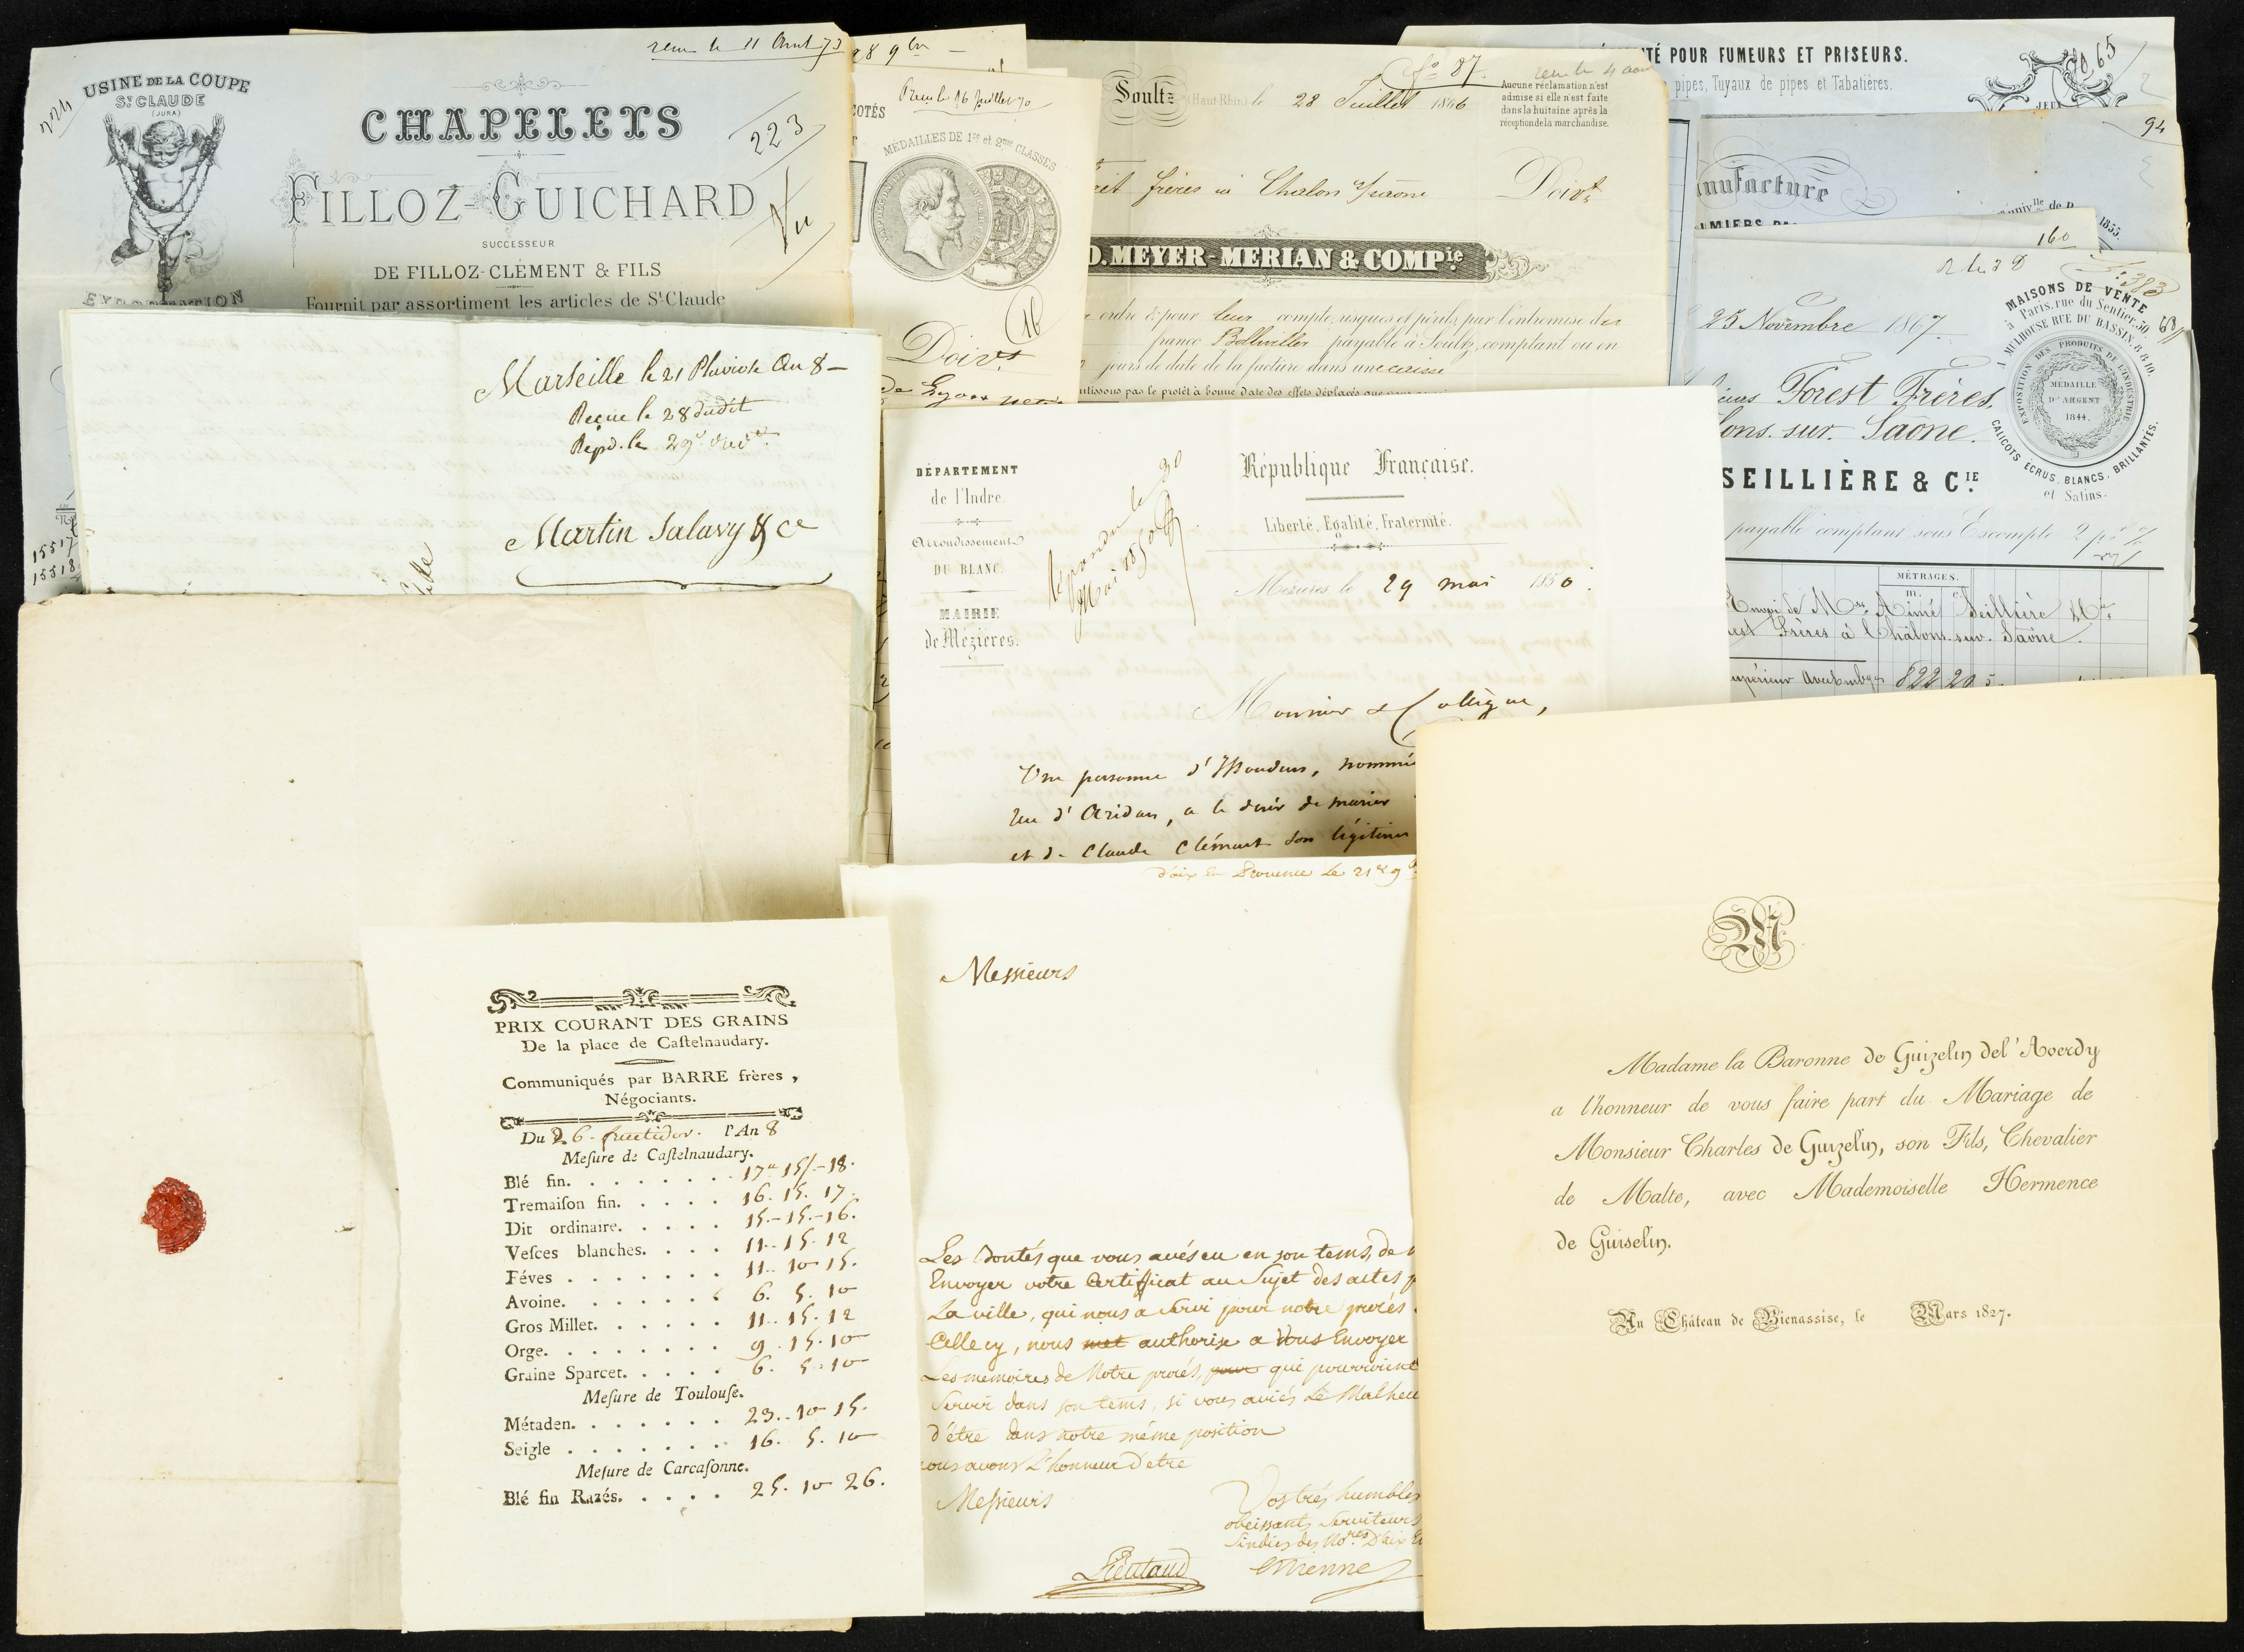 rem le 11 Août 73
224
USINE DE LA COUPE
St CLAUDE
(JURA)
CHAPELETS
223
Vu
FILLOZ-GUICHARD
SUCCESSEUR
DE FILLOZ-CLÉMENT & FILS
EXPORTATION
Fournit par assortiment les articles de St Claude
15517
15518
COTÉS
16 Juillet 70
MÉDAILLES DE 1re et 2me CLASSES
16
Doivt
de Lyon
fo 87.
rem le 4 aout
Soultz (Haut-Rhin) le 28 Juillet 1866
Aucune réclamation n'est
admise si elle n'est faite
dans la huitaine après la
réception de la marchandise.
frères à Chalon s/saône Doivt
D. MEYER-MERIAN & COMPie
ordre & pour leur compte, risques et périls, par l'entremise de
franco Bollwiller payable à Soultz, comptant ou en
jours de date de la facture dans une caisse
pas le protêt à bonne date des effets déplacés
TÉ POUR FUMEURS ET PRISEURS.
pipes, Tuyaux de pipes et Tabatières.
1065
94
anufacture
1855.
160
383
25 Novembre 1867.
MAISONS DE VENTE
à Paris, rue du Sentier, 30
A MULHOUSE RUE DU BASSIN, 8 & 10.
EXPOSITION DES PRODUITS DE L'INDUSTRIE
MÉDAILLE
D'ARGENT
1844.
CALICOTS ÉCRUS, BLANCS, BRILLANTÉS.
et Satins.
Forest Frères,
lons. sur. Saône.
SEILLIÈRE & Cie
payable comptant sous Escompte 2 p%
MÉTRAGES.
m. c.
Envoi de Mrs. Aimé Seillière & Cie.
Frères à Châlons. sur. Saône.
822 20
Marseille le 21 Pluviose An 8
Reçue le 28 dudit
Repd. le 29 dudit
Martin Salavy & Ce
DÉPARTEMENT
de l'Indre.
Arrondissement
DU BLANC.
MAIRIE
de Mézières.
Répondu le 30
Mai 1850
République Française.
Liberté, Egalité, Fraternité.
Mézières, le 29 mai 1850.
Monsieur & Collègue,
Une personne d'Issoudun, nommé
rue d', a le désir de marier
et de Claude Clément son légitime
PRIX COURANT DES GRAINS
De la place de Caſtelnaudary.
Communiqués par BARRE frères,
Négocians.
Du 26 fructidor. l'An 8
Meſure de Caſtelnaudary.
Blé fin. . . . . . . 17 15 - 18.
Tremaiſon fin. . . . . 16. 15. 17.
Dit ordinaire. . . . . 15.-15.-16.
Veſces blanches. . . . 11. 15. 12
Féves . . . . . . . 11. 10 15.
Avoine. . . . . . . 6. 5. 10
Gros Millet. . . . . . 11. 15. 12
Orge. . . . . . . . 9. 15. 10
Graine Sparcet. . . . . 6. 5. 10
Meſure de Toulouſe.
Métaden. . . . . . . 23. 10 15.
Seigle . . . . . . . 16. 5. 10
Meſure de Carcaſonne.
Blé fin Razés. . . . . 25. 10 26.
d'aix en Provence Le 21
Messieurs
Les bontés que vous avés eu en son tems, de
Envoyer votre Certifficat au Sujet des actes
La ville, qui nous a servi pour notre procés
Celle cy, nous met authorise a Vous Envoyer
Les mémoires de Notre procés, pour qui pourroient
Servir dans son tems, si vous aviés Le Malheu
d'être dans notre même position
nous avons L'honneur d'etre
Messieurs
Vos trés humbles
obeissants Serviteurs
Sindics des Nores D'aix
Lieutaud
Etienne
M
Madame la Baronne de Guizelin del'Averdy
a l'honneur de vous faire part du Mariage de
Monsieur Charles de Guizelin, son Fils, Chevalier
de Malte, avec Mademoiselle Hermence
de Guiselin.
Au Château de Bienassise, le Mars 1827.